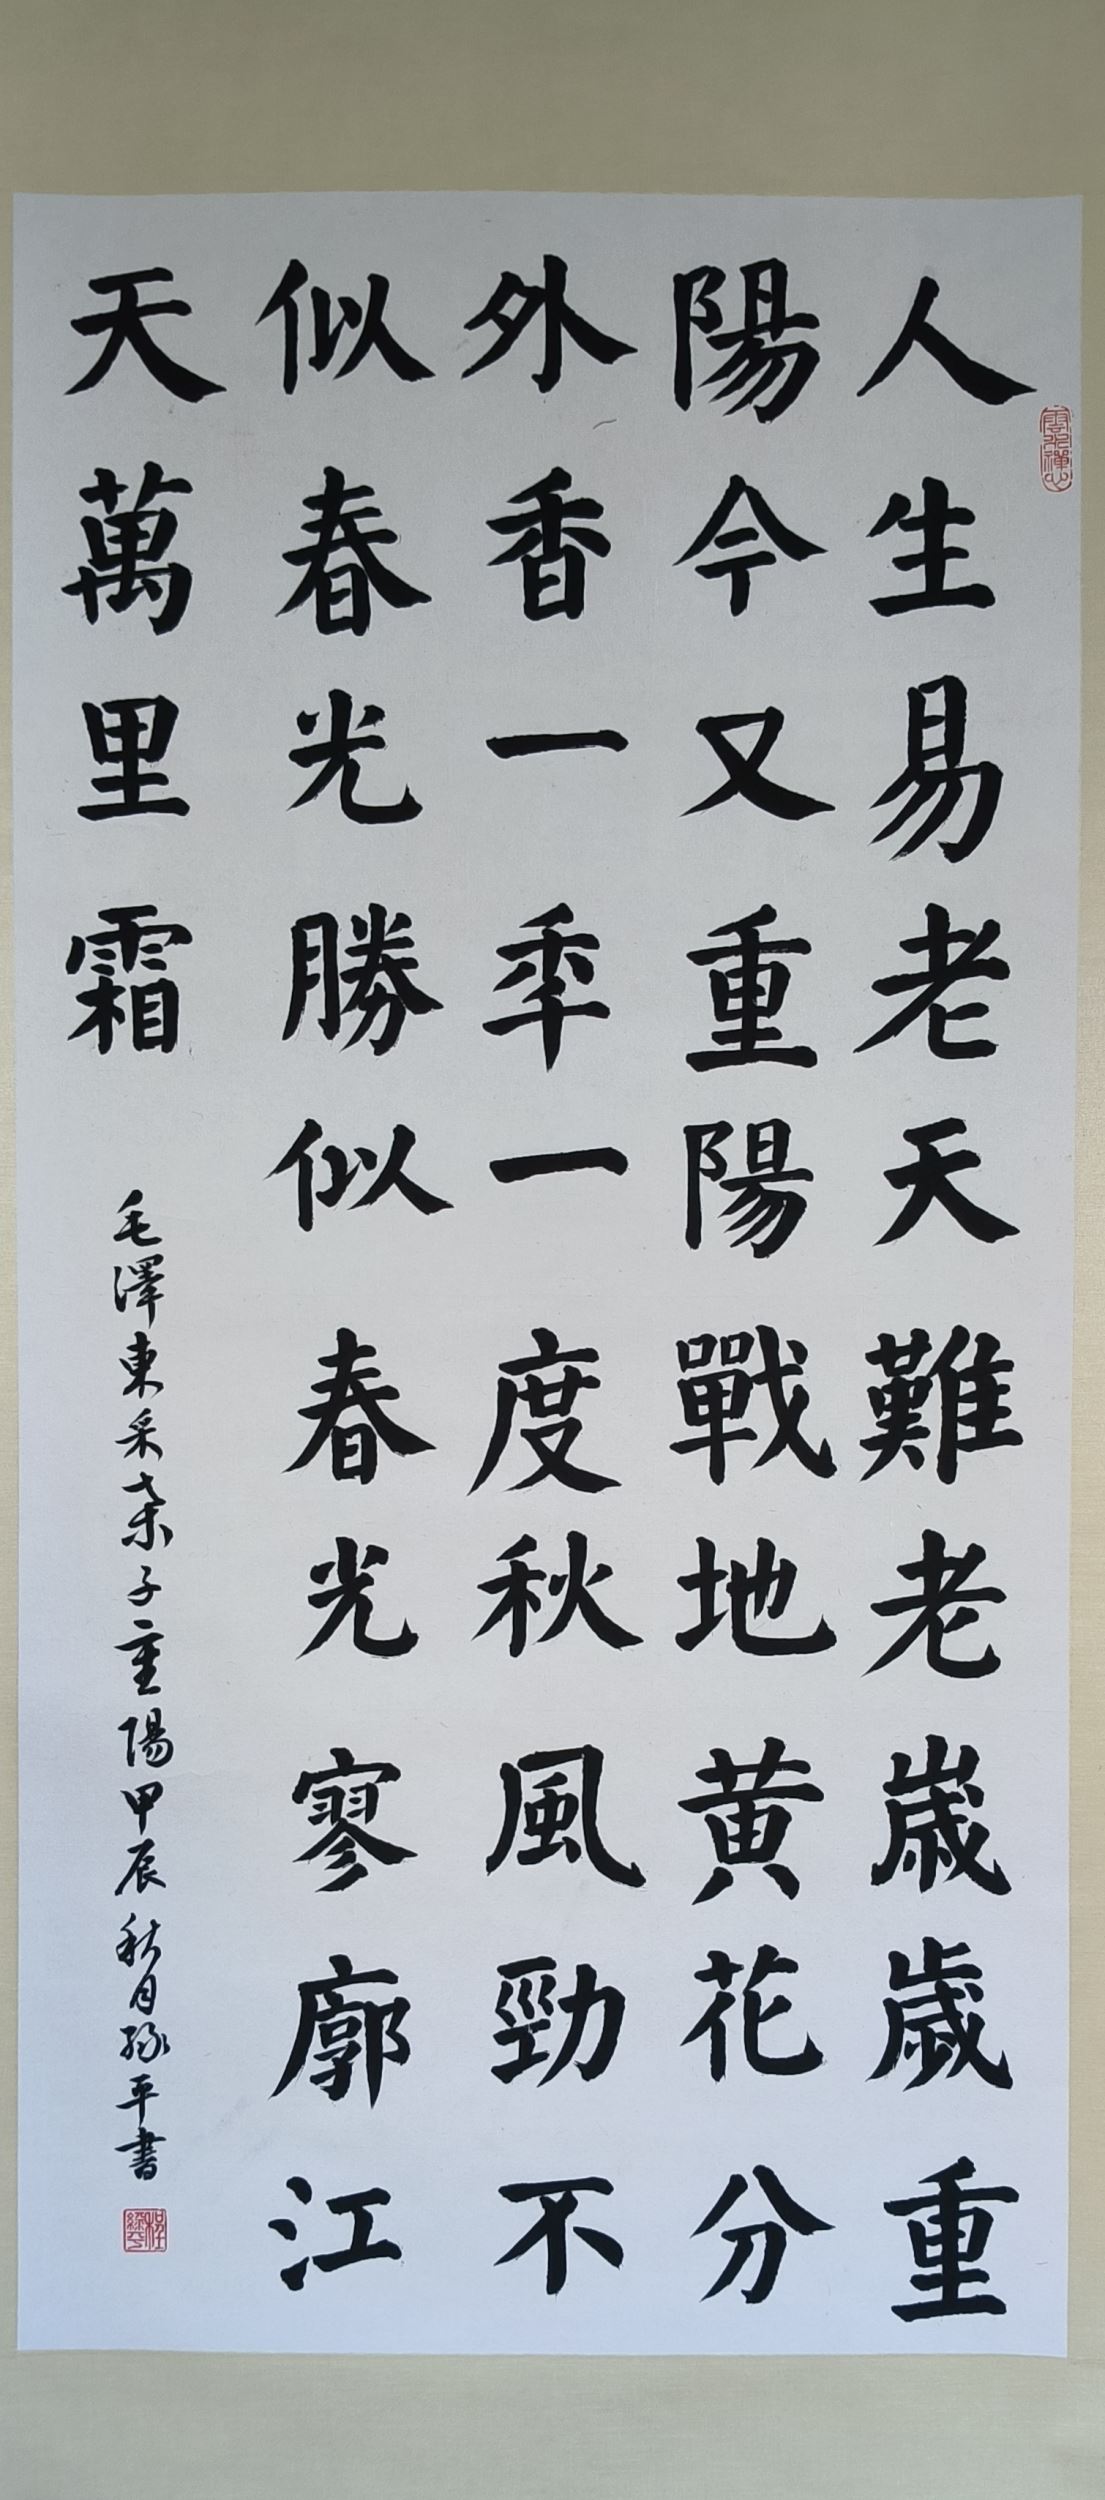 人生易老天難老歲歲重
陽今又重陽戰地黄花分
外香一秊一度秋風勁不
似春光勝似春光寥廓江
天萬里霜
毛澤東采桒子重陽甲辰秋月平書
雲水禪心